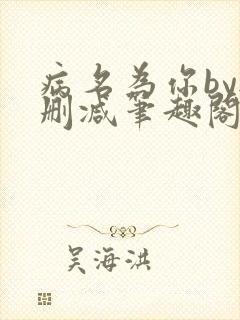 病名为你by
删减笔趣阁
吴海洪